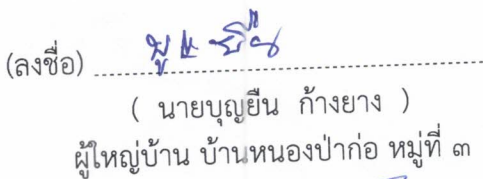 (ลงชื่อ)
( นายบุญยืน ก้างยาง )
ผู้ใหญ่บ้าน บ้านหนองป่าก่อ หมู่ที่ ๓